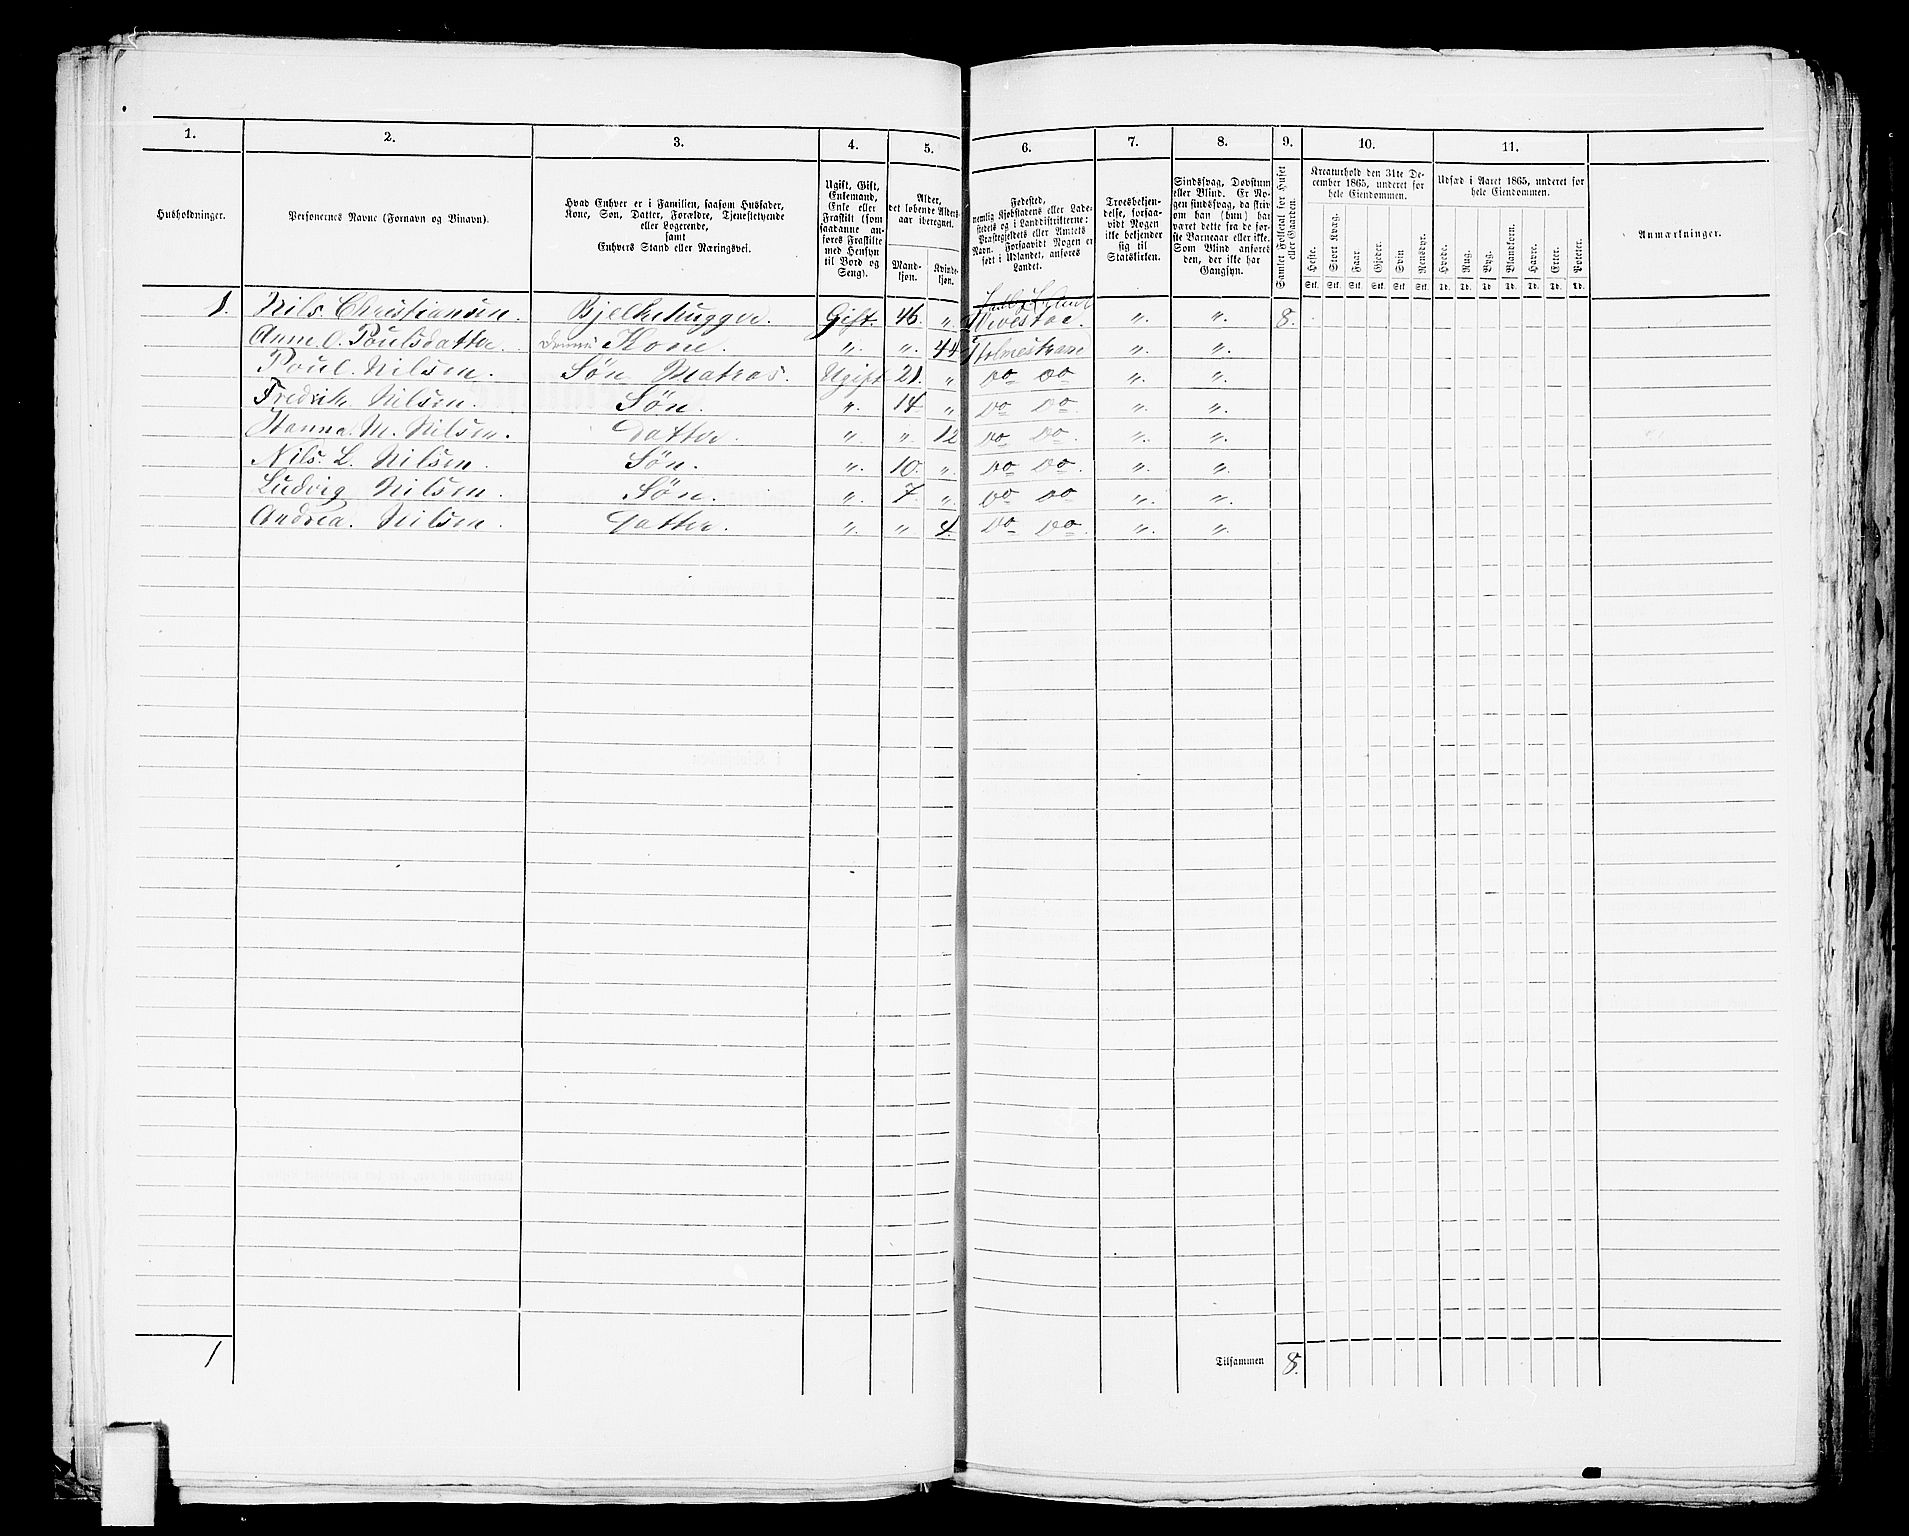 1. 2. 3. 4. 5. 6. 7. 8. 9. 10. 11.
Husholdninger.
Personernes Navne (Fornavn og Binavn).
Hvad Enhver er i Familien, saasom Husfader,
Kone, Søn, Datter, Forældre, Tjenestetyende
eller Logerende,
samt
Enhvers Stand eller Næringsvei.
Ugift, Gift,
Enkemand,
Enke eller
Fraskilt (som
saadanne anføres Fraskilte
med Hensyn
til Bord og
Seng).
Alder,
det løbende Alders-
aar iberegnet.
Mand-
kjøn.
Kvinde-
kjøn.
Fødested,
nemlig Kjøbstadens eller Lade-
stedets og i Landdistrikterne:
Præstegjeldets eller Amtets
Navn. Forsaavidt Nogen er
født i Udlandet, anføres
Landet.
Troesbekjen-
delse, forsaa-
vidt Nogen
ikke bekjender
sig til
Statskirken.
Sindssvag, Døvstum
eller Blind. Er No-
gen sindssvag, da skriv
om han (hun) har
været dette fra de før-
ste Barneaar eller ikke.
Som Blind anføres
den, der ikke har
Gangsyn.
Samlet Folketal for Huset
eller Gaarden.
Kreaturhold den 31te De-
cember 1865, underet for
hele Eiendommen.
Heste. Stort Kvæg. Faar. Gjeder. Svin Rensdyr.
Stk. Stk. Stk. Stk. Stk. Stk.
Udsæd i Aaret 1865, underet for
hele Eiendommen.
Hvede. Rug. Byg. Blandkorn. Havre. Erter. Poteter.
Td. Td. Td. Td. Td. Td. Td.
Anmærkninger.
1. Nils Christiansen. Bjelkehugger. Gift. 46. „ „ „ 8.
Anne O. Poulsdatter. Kone. „ „ 44 Holmestrand „ „
Poul. Nilsen. Søn Matros. Ugift 21. „ Do Do „ „
Fredrik Nilsen. Søn. „ 14 „ Do Do „ „
Hanna M. Nilsen. Datter. „ „ 12 Do Do „ „
Nils. L. Nilsen. Søn. „ 10. „ Do Do „ „
Ludvig Nilsen. Søn. „ 7. „ Do Do „ „
Andrea. Nilsen. Datter. „ „ 4. Do Do „ „
1 Tilsammen 8.